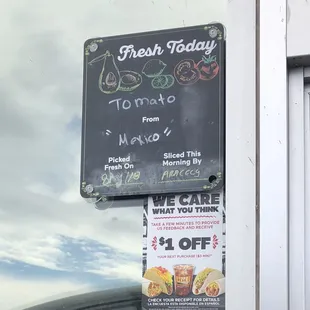 Fresh Today
Tomato
From
"Mexico"
Picked
Fresh On
Sliced This
Morning By
WE CARE
WHAT YOU THINK
TAKE A FEW MINUTES TO PROVIDE
US FEEDBACK AND RECEIVE
$1 OFF
YOUR NEXT PURCHASE
CHECK YOUR RECEIPT FOR DETAILS
LA ENCUESTA ESTÁ DISPONIBLE EN ESPAÑOL